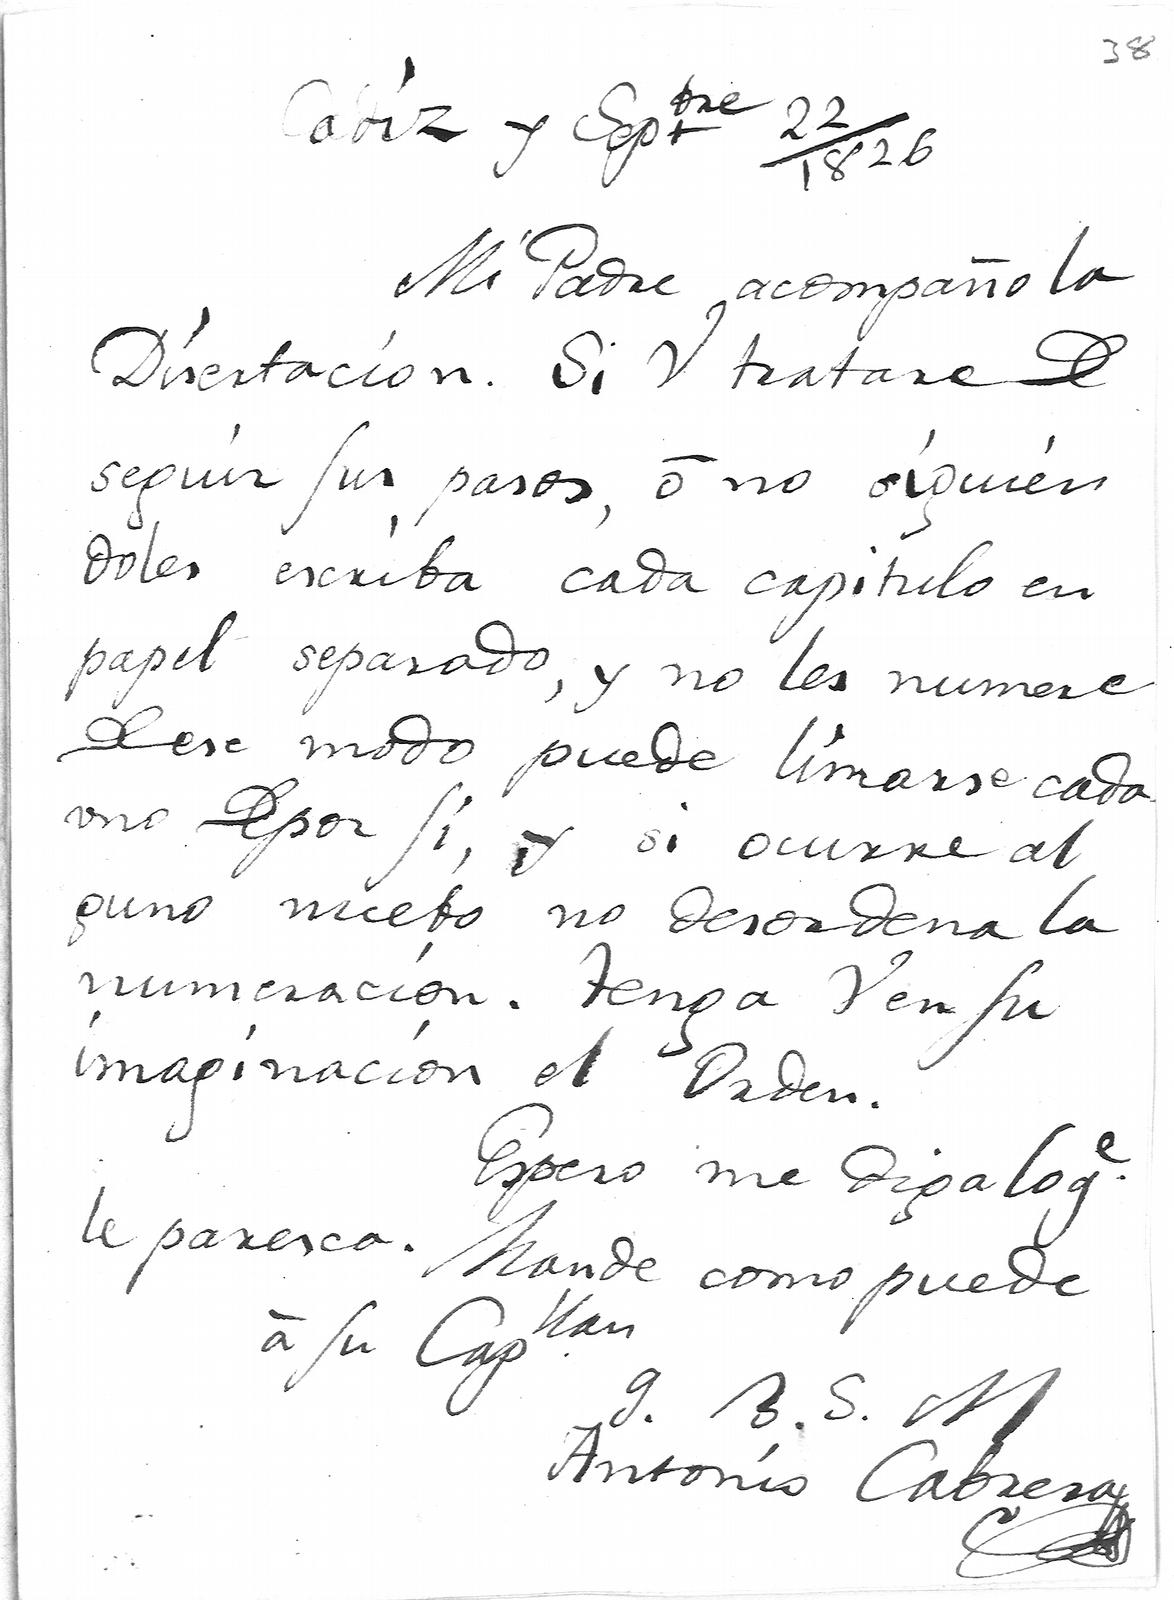 38
Cadiz y Sept.bre 22/1826
Mi Padre acompaño la
Disertacion. Si V tratare de
seguir sus pasos, ō no siguien
doles escriba cada capitulo en
papel separado, y no les numere
de ese modo puede limarse cada
uno de por sí, y si ocurre al
guno nuebo no desordena la
numeracion. tenga V en su
imaginacion el Orden.
Espero me diga lo q.e
le paresca. Mande como puede
ā su Cap.llan
q. B. S. M
Antonio Cabrera